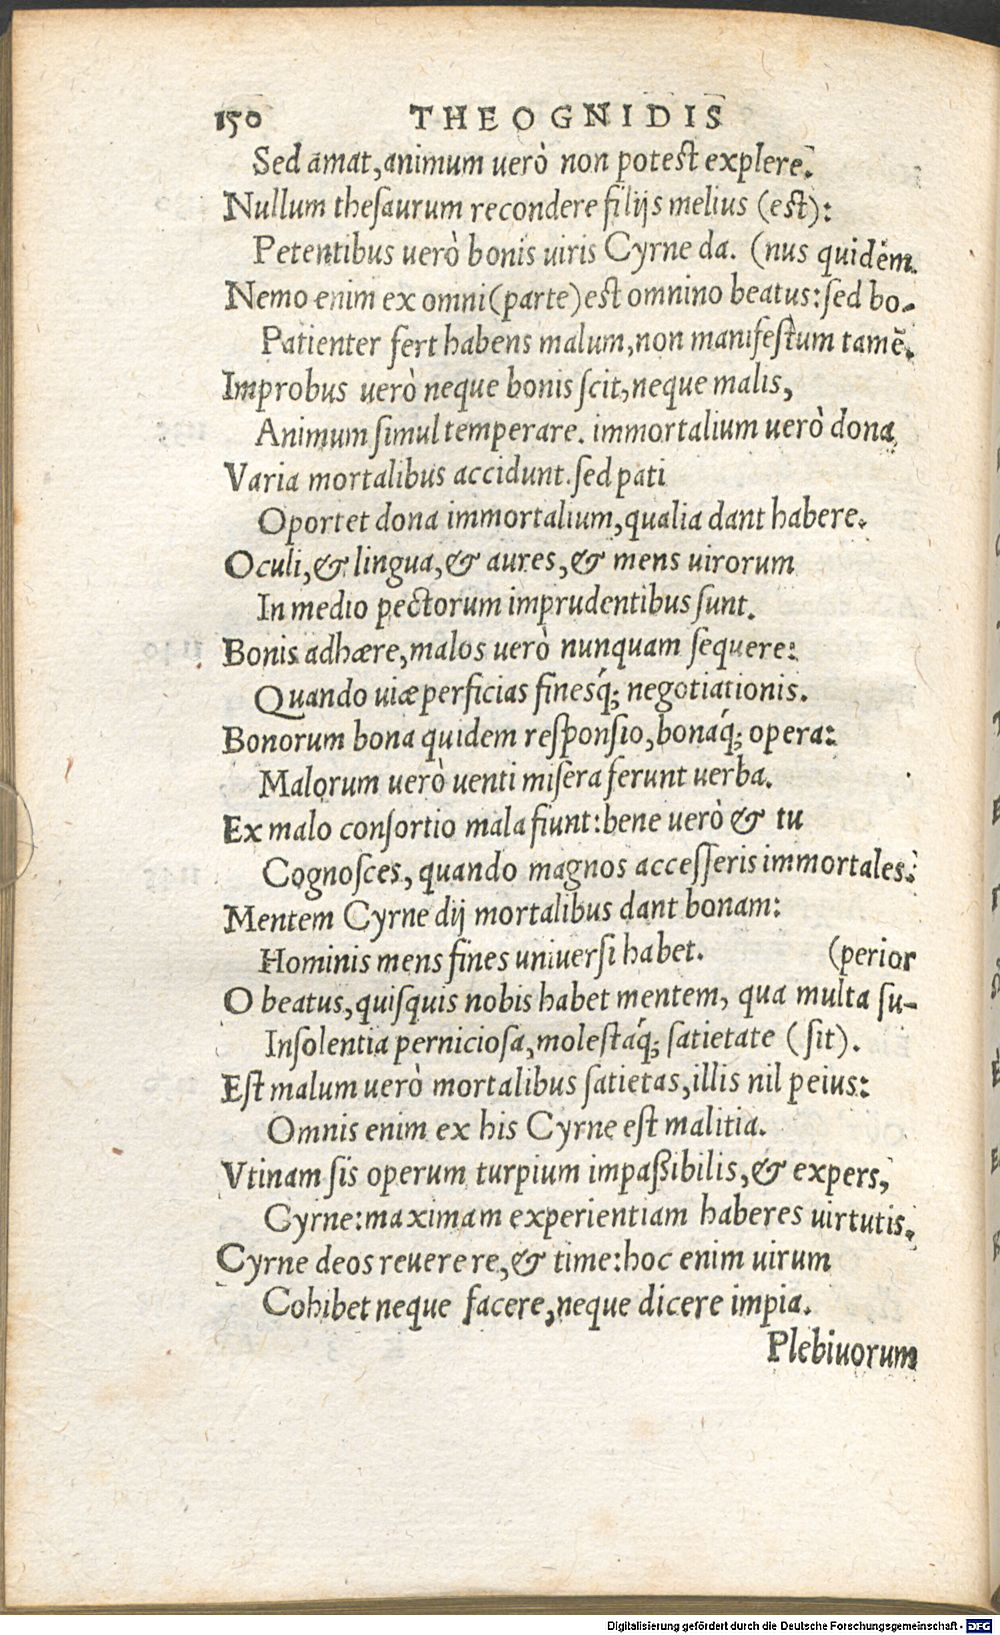 150 THEOGNIDIS
Sed amat, animum uerò non potest explere.
Nullum theſaurum recondere filijs melius (est):
Petentibus uerò bonis uiris Cyrne da. (nus quidẽm.
Nemo enim ex omni (parte) est omnino beatus: ſed bo-
Patienter fert habens malum, non manifeſtum tamẽ.
Improbus uerò neque bonis ſcit, neque malis,
Animum ſimul temperare. immortalium uerò dona
Varia mortalibus accidunt. ſed pati
Oportet dona immortalium, qualia dant habere.
Oculi, & lingua, & aures, & mens uirorum
In medio pectorum imprudentibus ſunt.
Bonis adhære, malos uerò nunquam ſequere:
Quando uiæ perficias finesq́; negotiationis.
Bonorum bona quidem reſponſio, bonaq́; opera:
Malorum uerò uenti miſera ferunt uerba.
Ex malo conſortio mala fiunt: bene uerò & tu
Cognoſces, quando magnos acceſſeris immortales.
Mentem Cyrne dij mortalibus dant bonam:
Hominis mens fines uniuerſi habet. (perior
O beatus, quiſquis nobis habet mentem, qua multa ſu-
Inſolentia pernicioſa, moleſtaq́; ſatietate (ſit).
Eſt malum uerò mortalibus ſatietas, illis nil peius:
Omnis enim ex his Cyrne eſt malitia.
Vtinam ſis operum turpium impaßibilis, & expers,
Cyrne: maximam experientiam haberes uirtutis.
Cyrne deos reuerere, & time: hoc enim uirum
Cohibet neque facere, neque dicere impia.
Plebiuorum
Digitalisierung gefördert durch die Deutsche Forschungsgemeinschaft - DFG